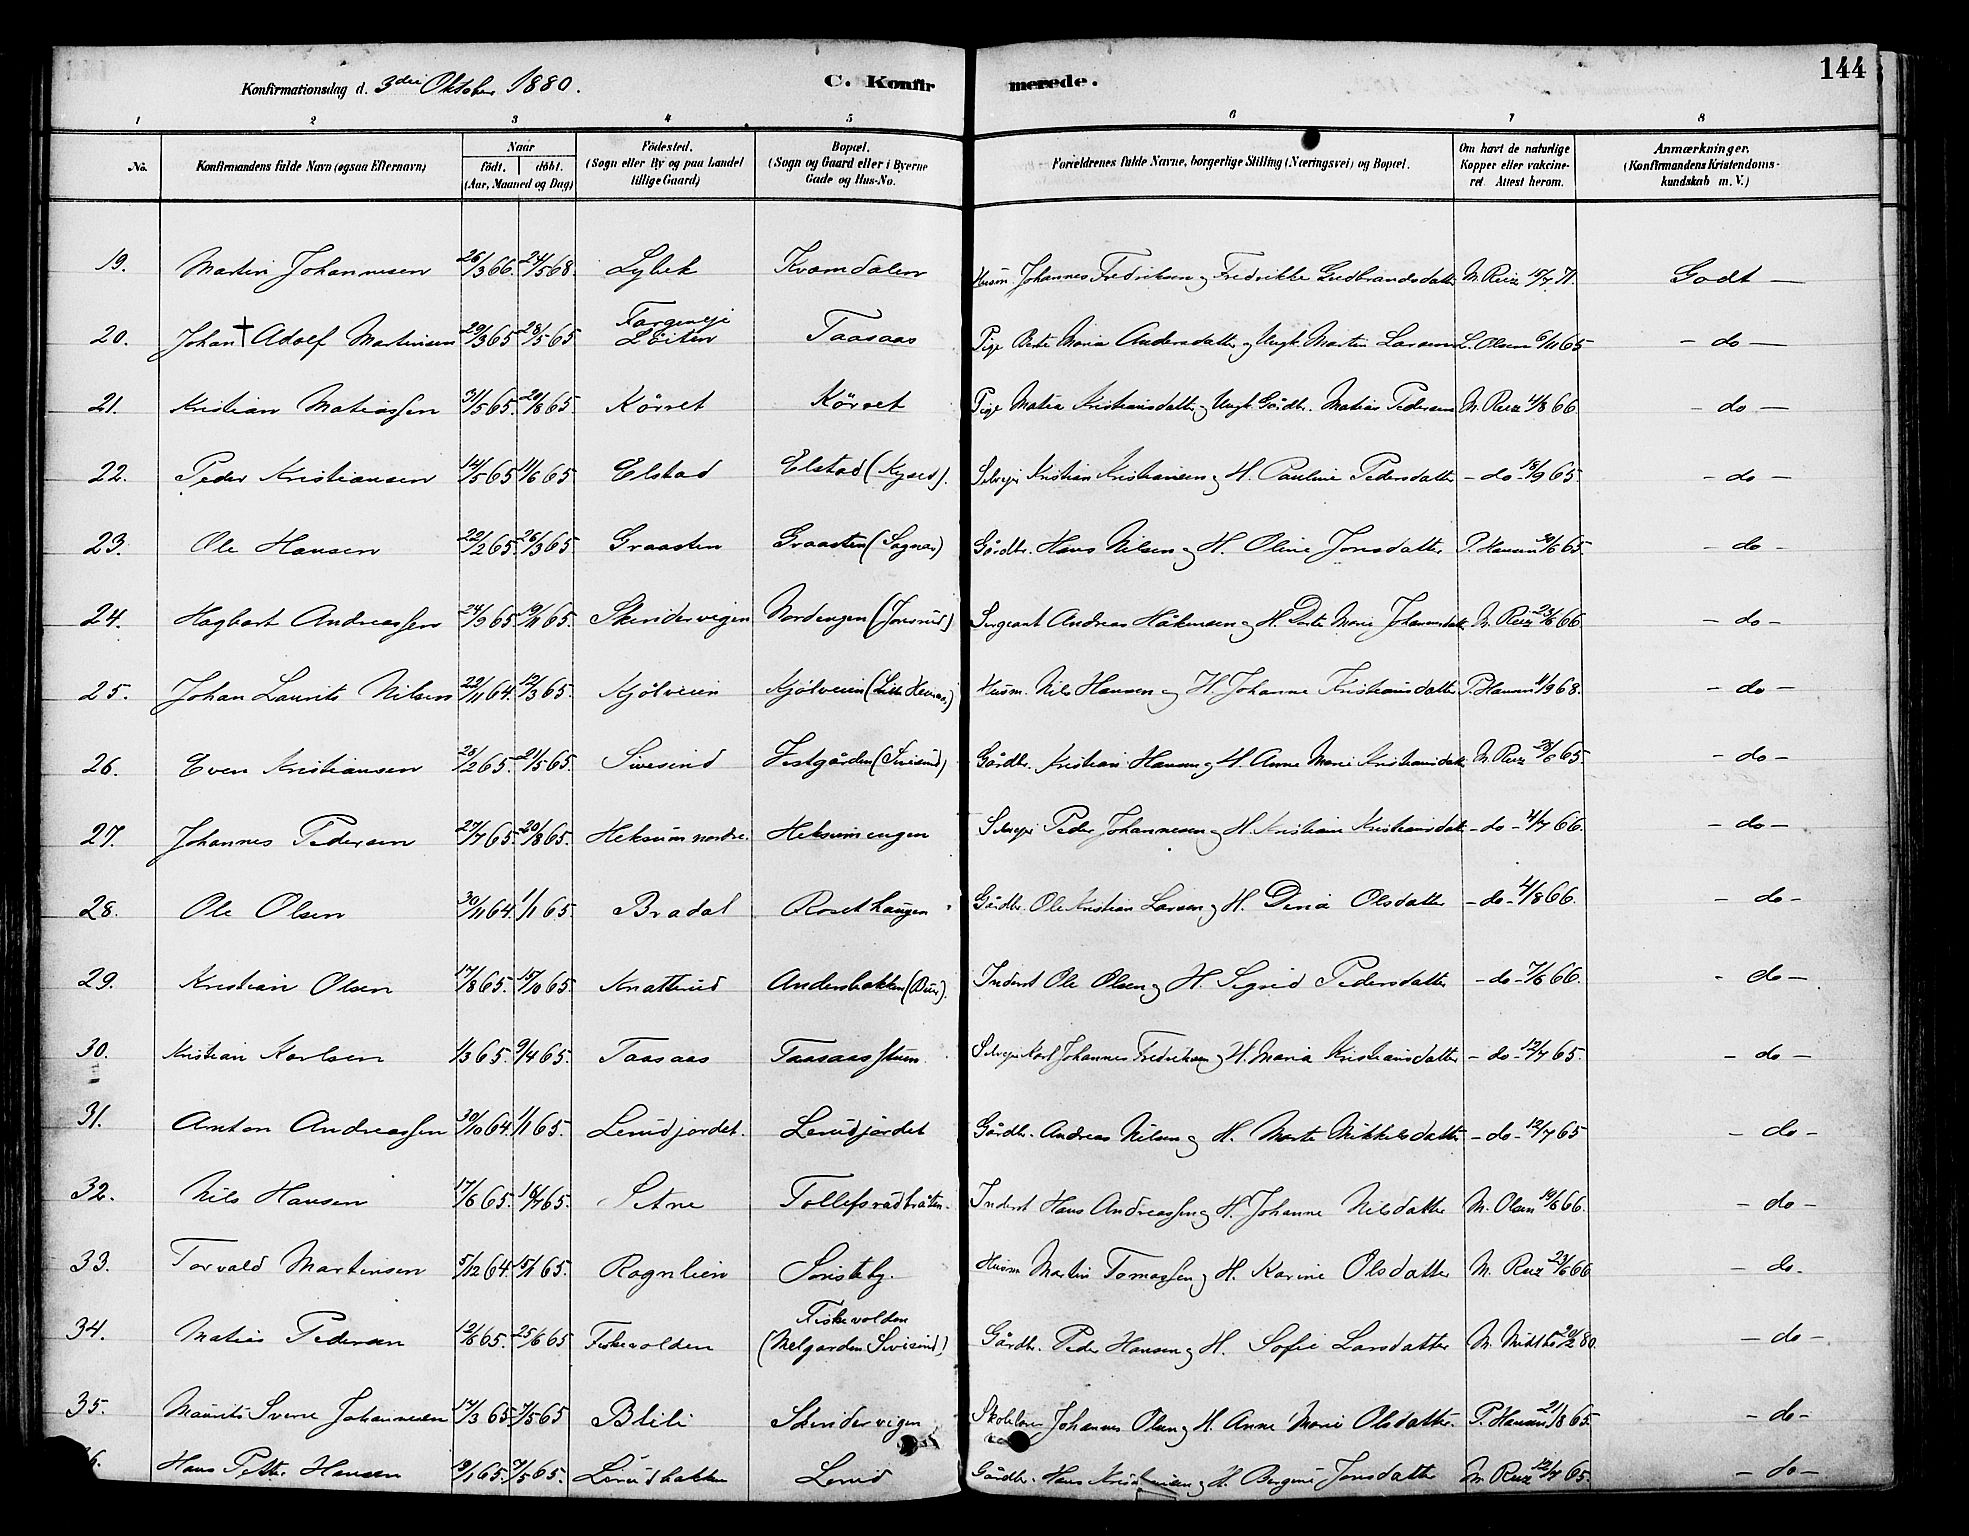 Konfirmationsdag d. 3die Oktober 1880. C. Konfirmerede. 144
1 2 3 4 5 6 7 8
No. Konfirmandens fulde Navn (ogsaa Efternavn) Naar født. døbt. (Aar, Maaned og Dag) Fødested. (Sogn eller By og paa Landet tillige Gaard) Bopæl. (Sogn og Gaard eller i Byerne Gade og Hus-No. Forældrenes fulde Navne, borgerlige Stilling (Næringsvei) og Bopæl. Om havt de naturlige Kopper eller vakcineret. Attest herom. Anmærkninger. (Konfirmandens Kristendomskundskab m. V.)
19. Martin Johannesen 26/3 66. 24/5 68. Lybek Kvamdalen Husm. Johannes Fredriksen og Fredrikke Gudbrandsdatter M. Reiz 15/7 71. Godt —
20. Johan Adolf Martinsen 29/3 65 28/5 65 Løiten Taasaas Pige Berte Maria Andersdatter og Ungk. Martin Larsen L. Olsen 6/11 65 — do —
21. Kristian Matiassen 31/5 65. 20/8 65. Kørret Kørret Pige Matea Kristiansdatter og Ungk. Gårdbr. Matias Pedersen M. Reiz 4/8 66 — do —
22. Peder Kristiansen 14/5 65 11/6 65 Elstad Elstad Selvejer Kristian Kristiansen og H. Pauline Pedersdatter — do — 18/9 65. — do —
23. Ole Hansen 22/2 65. 26/3 65 Graasten Graasten (Sagnæs) Gårdbr. Hans Nilsen og H. Oline Jonsdatter P. Hansen 30/6 65 — do —
24. Hagbart Andreassen 24/9 65 19/11 65. Skindervigen Nordengen (Jonsrud) Sergeant Andreas Håkensen og H. Dorte Marie Johannesdatt. M. Reiz 23/6 66 — do —
25. Johan Laurits Nilsen 22/11 64. 12/3 65. Kjølveien Kjølveien Husm. Nils Hansen og H. Johanne Kristiansdatter P. Hansen 11/9 68. — do —
26. Even Kristiansen 28/2 65. 21/5 65. Sivesind (Sivesind) Gårdbr. Kristian Hansen og H. Anne Marie Kristiansdatt. M. Reiz 28/6 65. — do —
27. Johannes Pedersen 27/7 65. 20/8 65. Heksum nordre. Heksumengen Selvejer Peder Johannesen og H. Kristian Kristiansdatt. — do — 4/7 66. — do —
28. Ole Olsen 30/11 64. 1/1 65. Bradal Rosethaugen Gårdbr. Ole Kristian Larsen og H. Dina Olsdatter — do — 4/8 66. — do —
29. Kristian Olsen 17/8 65. 15/10 65. Knatterud Andersbakken Inderst Ole Olsen og H. Sigrid Pedersdatter — do — 7/6 66. — do —
30. Kristian Karlsen 1/3 65. 9/4 65. Taasaas Selvejer Karl Johannes Fredriksen og H. Maria Kristiansdatter — do — 12/7 65. — do —
31. Anton Andreassen 30/10 64. 1/1 65. Lerudjordet. Lerudjordet Gårdbr. Andreas Nilsen og H. Marte Mikkelsdatter — do — 12/7 65 — do —
32. Nils Hansen 17/6 65. 16/7 65. Setne Tollefsrudbråten. Inderst Hans Andreassen og H. Johanne Nilsdatter M. Olsen 19/6 66. — do —
33. Torvald Martinsen 5/12 64. 15/1 65. Rognlien Sonsteby. Husm Martin Tomassen og H. Karine Olsdatter M. Reiz 23/6 66 — do —
34. Matias Pedersen 12/6 65. 25/6 65 Fiskevolden Fiskevolden (Melgarden Sivesind) Gårdbr. Peder Hansen og H. Sofie Larsdatter 20/2 80. — do —
35. Mauritz Sverre Johannesen 14/3 65. 7/5 65 Blili Skindervigen Skolelærer Johannes Olsen og H. Anne Marie Olsdatter. P. Hansen 21/8 65. — do —
Hans Petter Hansen 9/1 65. 7/5 65. Lerudbakken Lerud Gårdbr. Hans Kristiansen og H. Jonsdatter M. Reiz 12/7 65. — do —